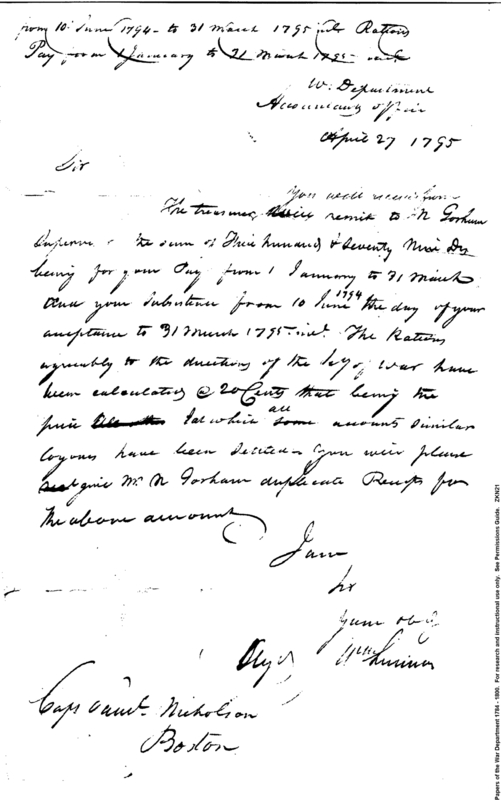 from 10 June 1794 to 31 March 1795 Rations
Pay from 1 January to 31 March 1795
W. Department
Accountants office
April 27 1795
Sir
you will receive from
The treasurer remit to N Gorham
Supervr the sum of Three hundred & Seventy Nine Drs
being for your Pay from 1 January to 31 March
and your Subsistence from 10 June 1794 the day of your
acceptance to 31 March 1795 The Rations
agreeably to the directions of the Secy of war have
been calculated @ 20 Cents that being the
price at which all some accounts similar
to yours have been Settled you will please
give Mr N Gorham duplicate Receipts for
the above amount
I am
Sir
your ob
Wm Simmons
Capt Saml. Nicholson
Boston
Papers of the War Department 1784 - 1800. For research and instructional use only. See Permissions Guide. ZKN21